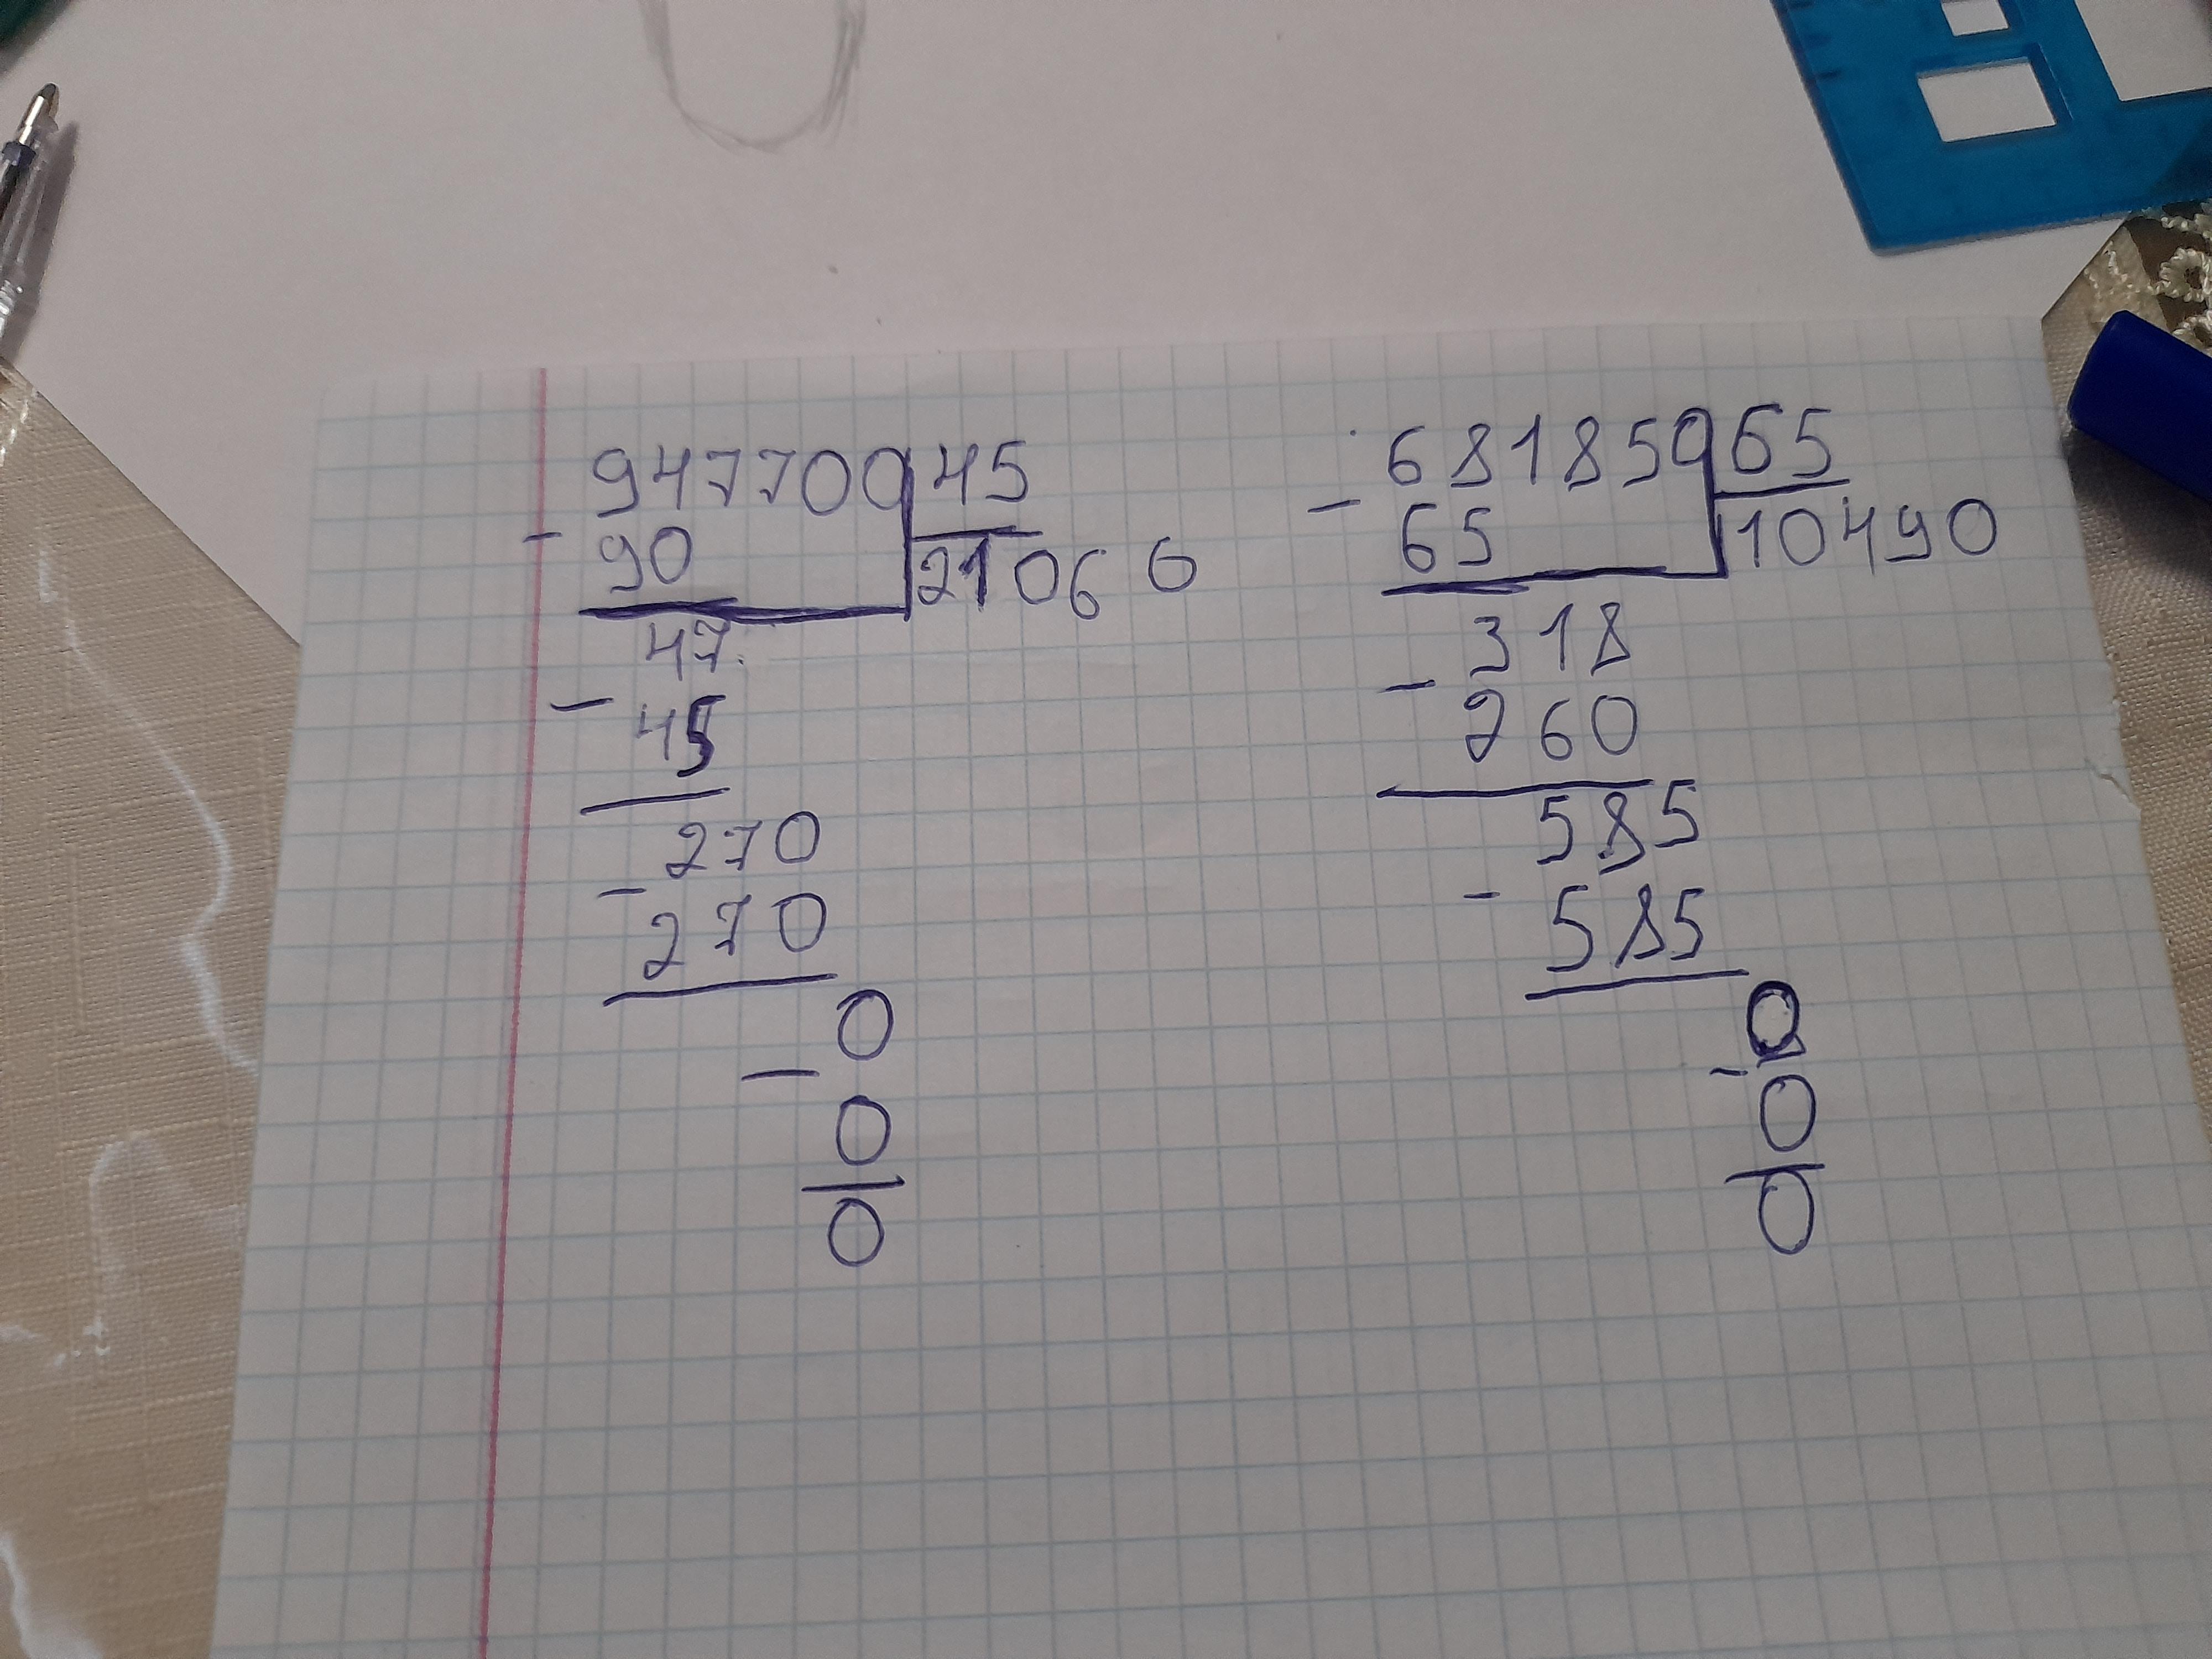 947700 45
- 90 21060
47
- 45
270
- 270
0
- 0
0
681850 65
- 65 10490
318
- 260
585
- 585
0
- 0
0